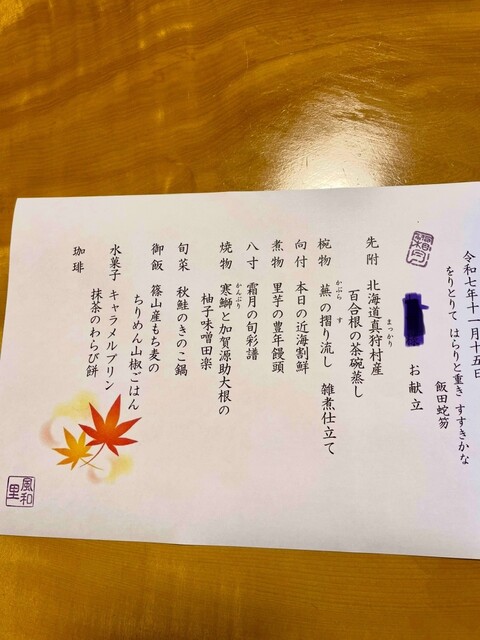 令和七年十一月十五日
をりとりて はらりと重き すすきかな
飯田蛇笏
お献立
先附 北海道真狩村産
まっかり
百合根の茶碗蒸し
椀物 蕪の摺り流し 雑煮仕立て
かぶら す
向付 本日の近海割鮮
煮物 里芋の豊年饅頭
八寸 霜月の旬彩譜
焼物 寒鰤と加賀源助大根の
かんぶり
柚子味噌田楽
旬菜 秋鮭のきのこ鍋
御飯 篠山産もち麦の
ちりめん山椒ごはん
水菓子 キャラメルプリン
抹茶のわらび餅
珈琲
風和里